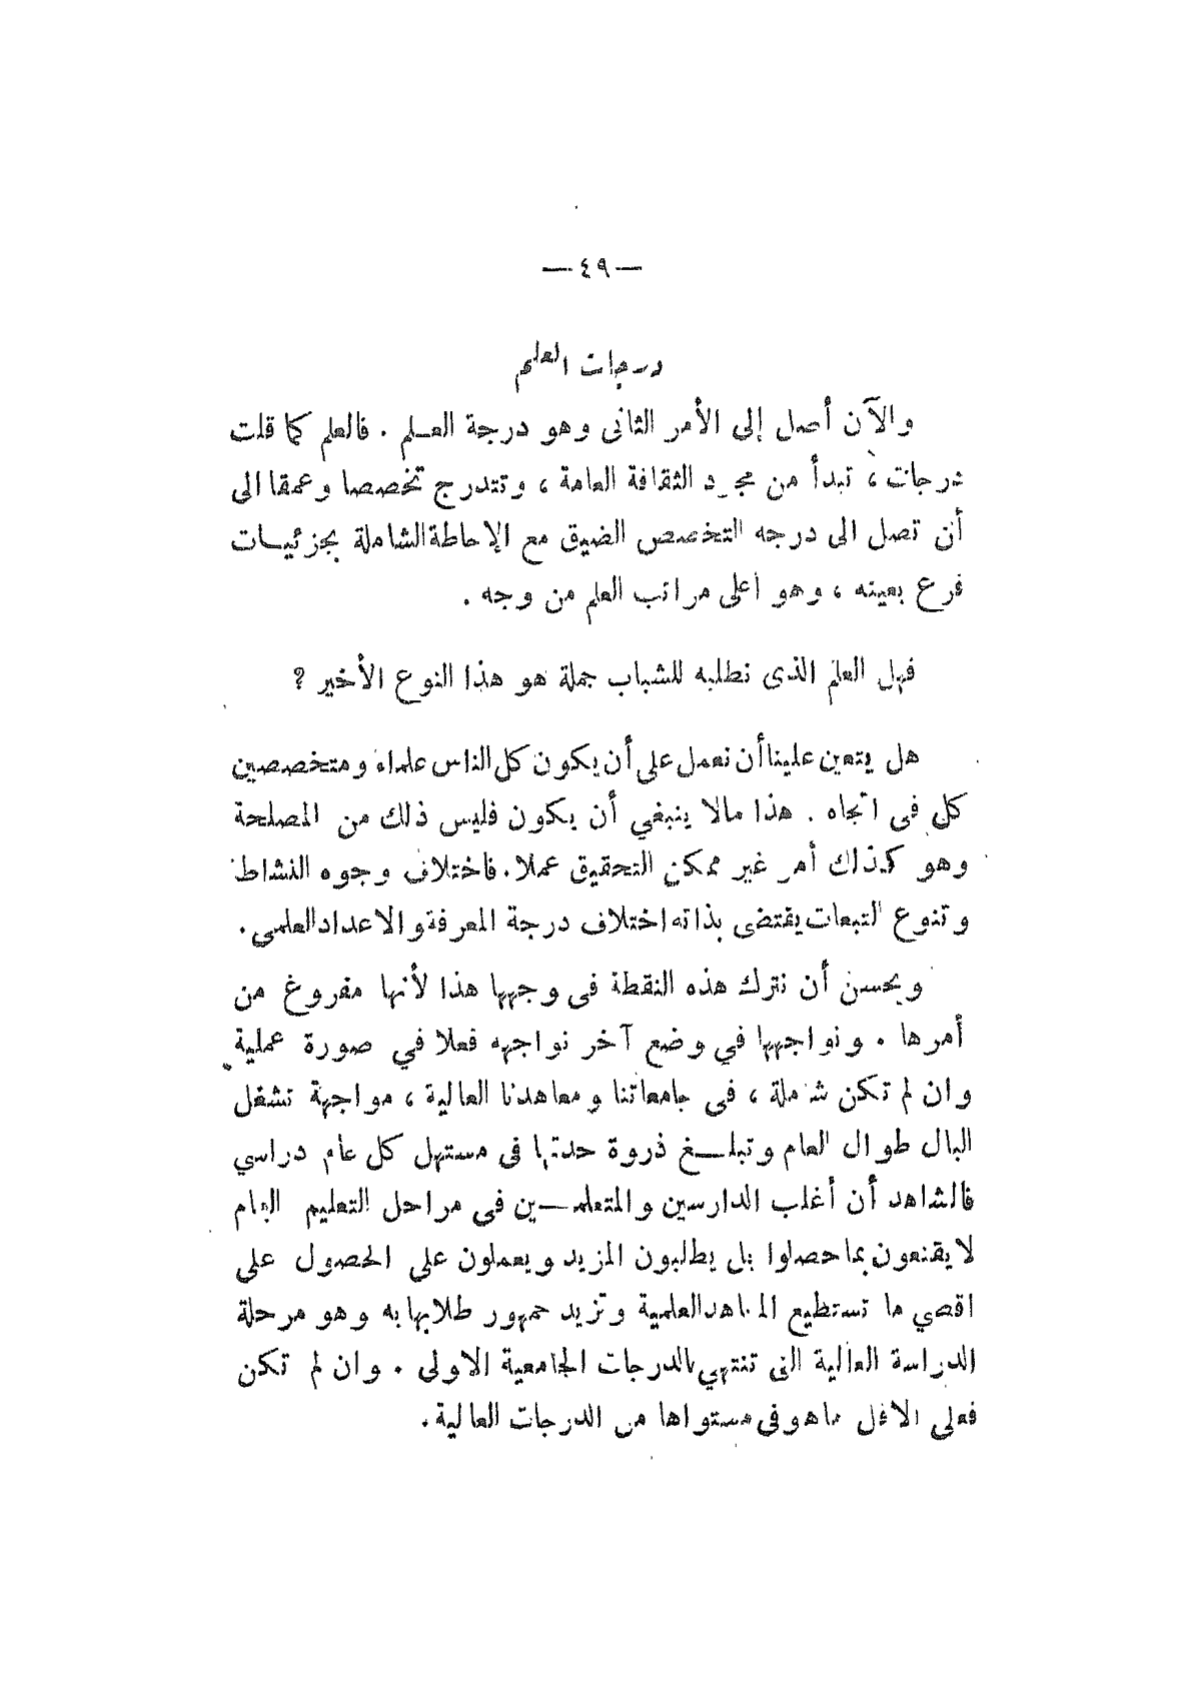 — ٤٩ —
درجات العلم
والآن أصل إلى الأمر الثانى وهو درجة العـلم . فالعلم كما قلت
درجات ، تبدأ من مجرد الثقافة العامة ، وتتدرج تخصصا وعمقا الى
أن تصل الى درجه التخصص الضيق مع الإحاطة الشاملة بجزئيـات
فرع بعينه ، وهو أعلى مراتب العلم من وجه .
فهل العلم الذى نطلبه للشباب جملة هو هذا النوع الأخير ؟
هل يتعين علينا أن نعمل على أن يكون كل الناس علماء ومتخصصين
كل فى اتجاه . هذا مالا ينبغي أن يكون فليس ذلك من المصلحة
وهو كذلك أمر غير ممكن التحقيق عملا . فاختلاف وجوه النشاط
وتنوع التبعات يقتضى بذاته اختلاف درجة المعرفة والاعداد العلمى .
ويحسن أن نترك هذه النقطة فى وجهها هذا لأنها مفروغ من
أمرها . ونواجهها في وضع آخر نواجهه فعلا في صورة عملية
وان لم تكن شاملة ، فى جامعاتنا ومعاهدنا العالية ، مواجهة تشغل
البال طوال العام وتبلـغ ذروة حدتها فى مستهل كل عام دراسي
فالشاهد أن أغلب الدارسين والمتعلمـين فى مراحل التعليم العام
لا يقنعون بما حصلوا بل يطلبون المزيد ويعملون على الحصول على
اقصي ما تستطيع المعاهد العلمية وتزيد جمهور طلابها به وهو مرحلة
الدراسة العالية التى تنتهي بالدرجات الجامعية الاولى . وان لم تكن
فعلى الاقل ماهو فى مستواها من الدرجات العالية .